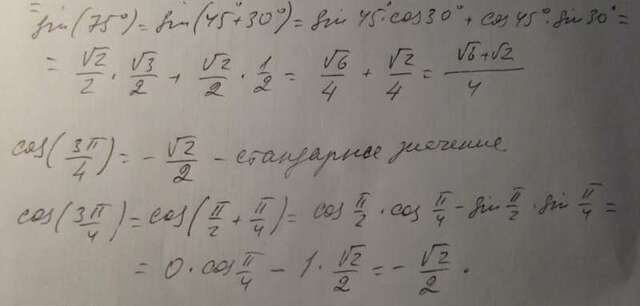 =
sin(75°) = sin(45°+30°) = sin 45°·cos 30° + cos 45°·sin 30° =
= √2/2 · √3/2 + √2/2 · 1/2 = √6/4 + √2/4 = (√6+√2)/4
cos(3π/4) = -√2/2 - стандарное значение
cos(3π/4) = cos(π/2 + π/4) = cos π/2 · cos π/4 - sin π/2 · sin π/4 =
= 0 · cos π/4 - 1 · √2/2 = -√2/2.